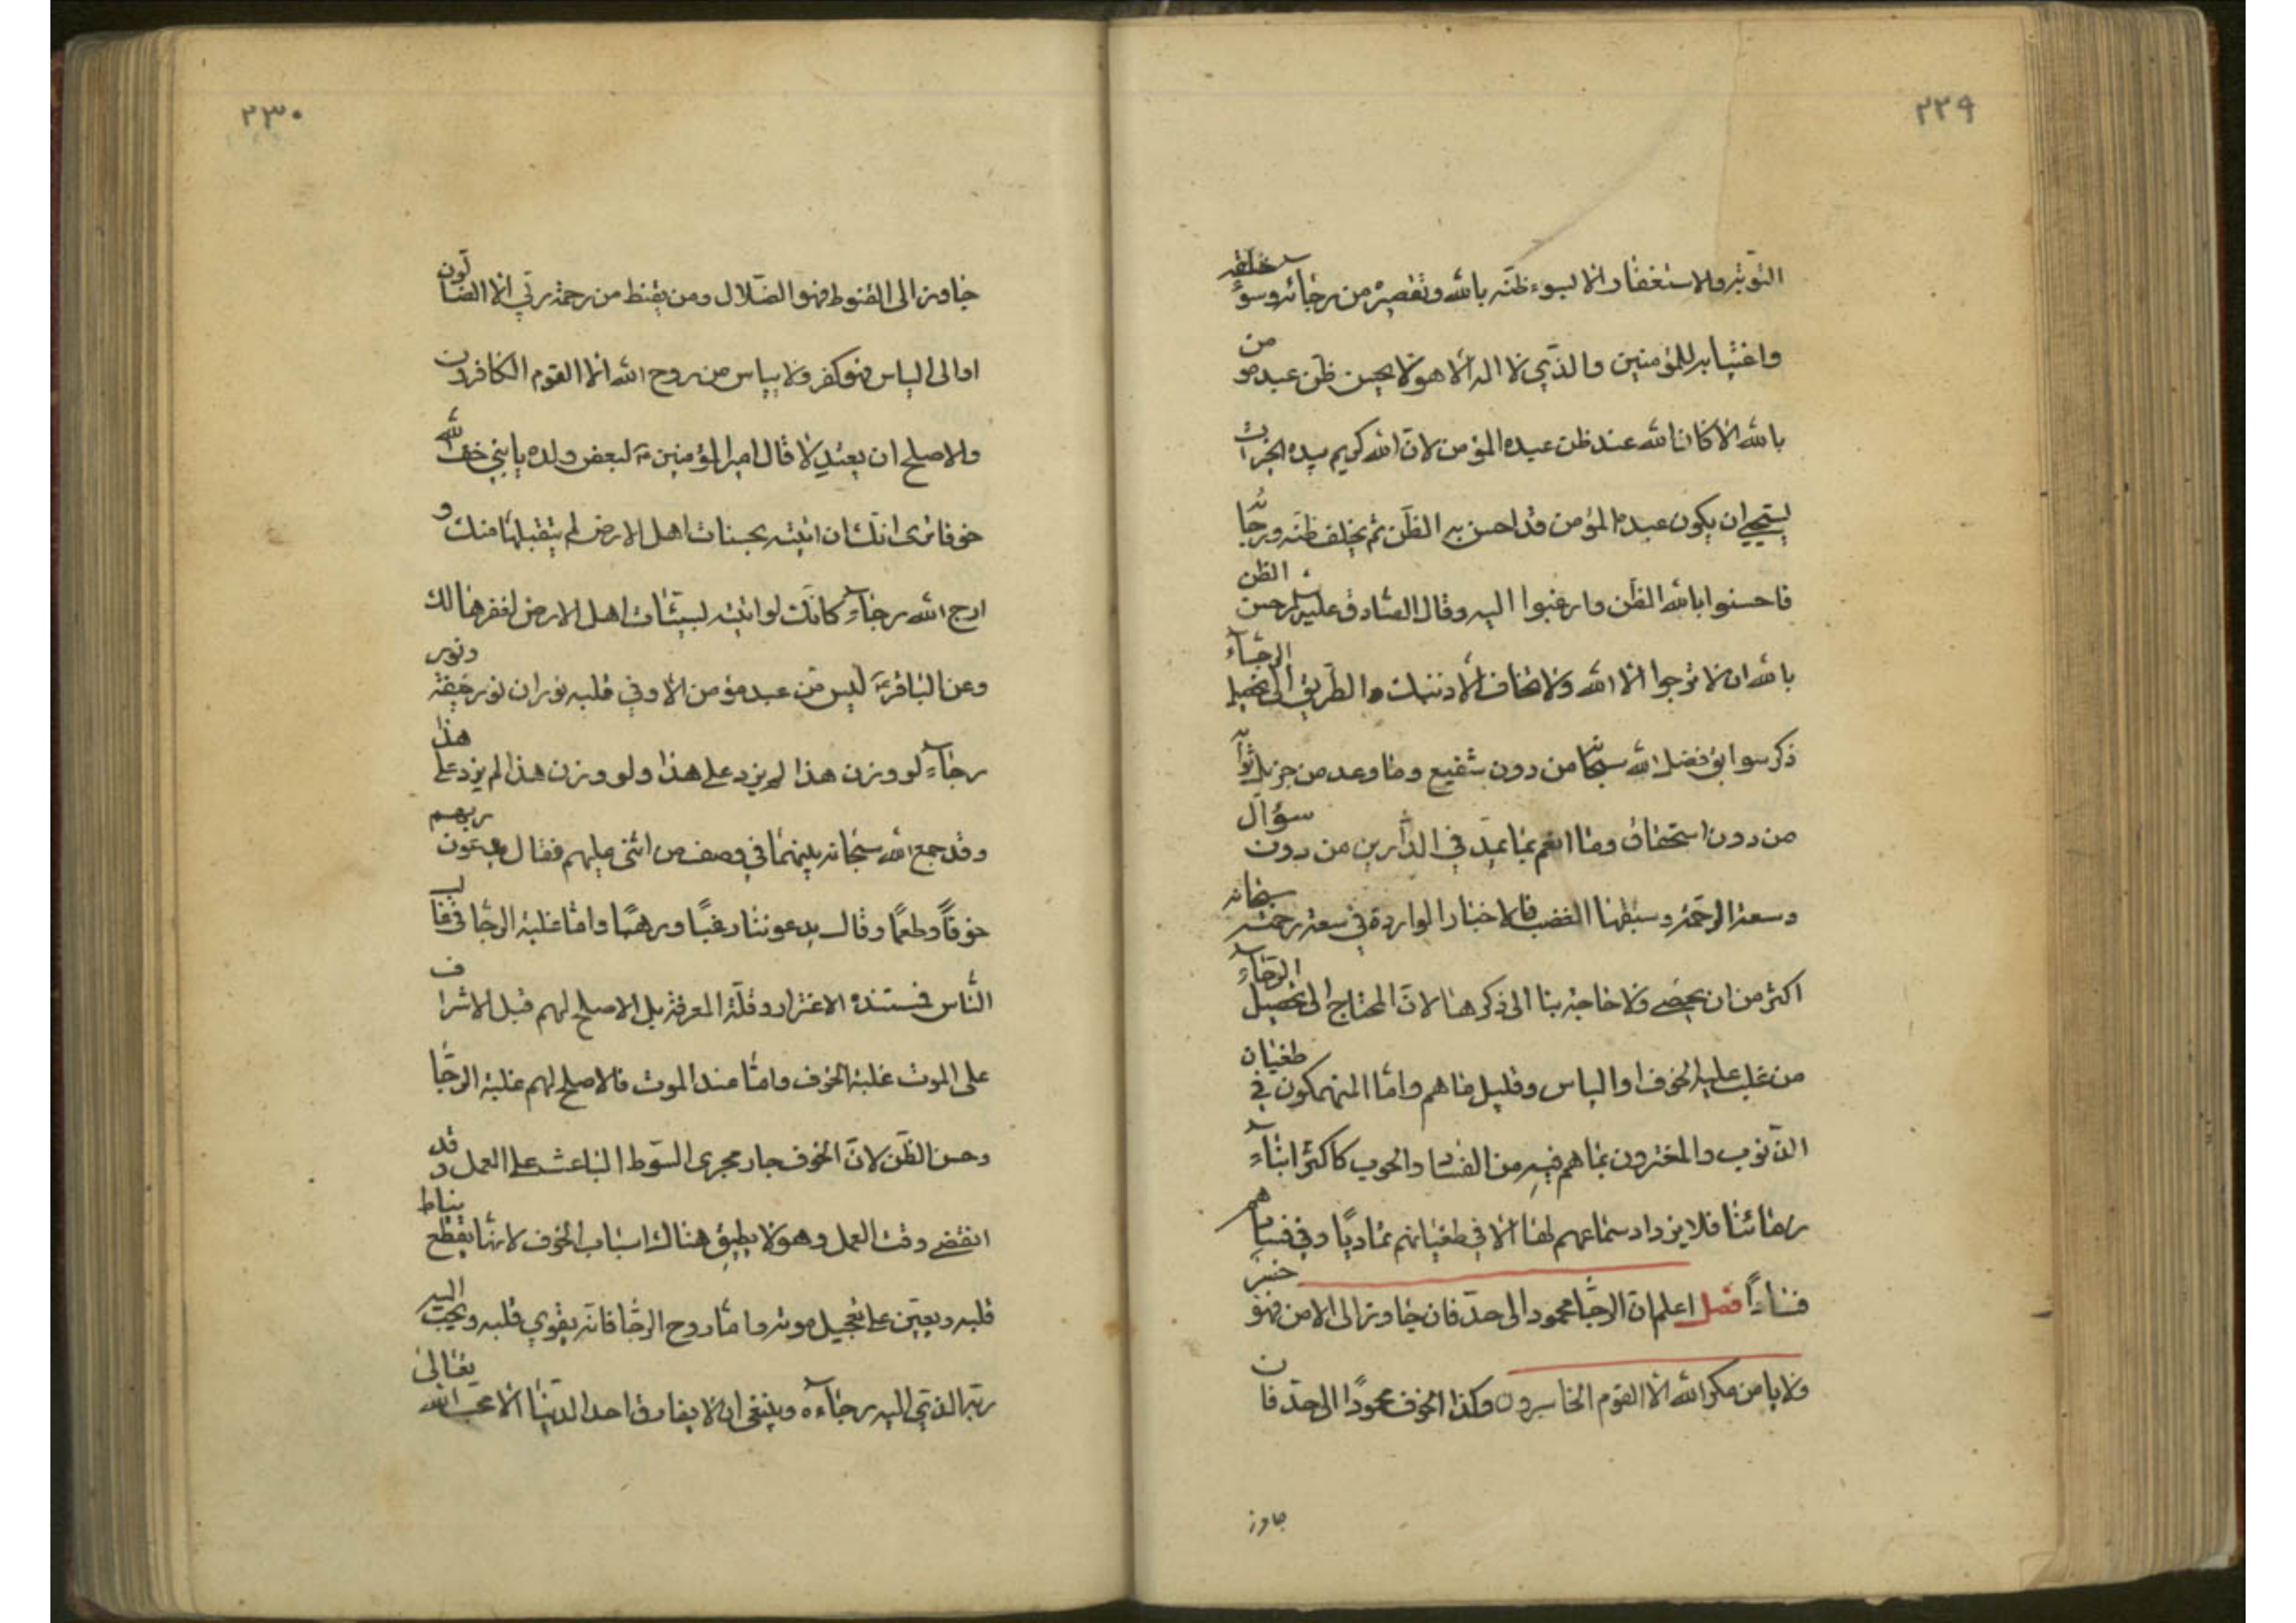 ٢٢٩
التوبة والاستغفار الا لسوء ظنه بالله وتقصيره من رجائه وسوء خلقه
واغتيابه للمؤمنين والذي لا اله الا هو لا يحسن ظن عبد مومن
بالله الا كان الله عند ظن عبده المؤمن لان الله كريم بيده الخيرات
يستحيي ان يكون عبده المؤمن قد احسن به الظن ثم يخلف ظنه ورجائه
فاحسنوا بالله الظن وارغبوا اليه وقال الصادق عليه السلم حسن الظن
بالله ان لا ترجوا الا الله ولا تخاف الا ذنبك والطريق الى تحصيل الرجاء
ذكر سوابق فضل الله سبحانه من دون شفيع وما وعد من جزيل ثوابه
من دون استحقاق وما انعم بما يمد في الدارين من دون سؤال
وسعة الرحمة وسبقها الغضب فالاخبار الواردة في سعة رحمته سبحانه
اكثر من ان يحصى ولا حاجة بنا الى ذكرها لان المحتاج الى تحصيل الرجاء
من غلب عليه الخوف او الياس وقليل ما هم واما المنهمكون في طغيان
الذنوب والمغترون بما هم فيه من الفساد والحوب كاكثر ابناء
زماننا فلا يزداد سماعهم لها الا في طغيانهم تماديا وفي فسادهم
فسادا فصل اعلم ان الرجا محمود الى حد فان جاوز الى الامن فهو خسر
ولا يامن مكر الله الا القوم الخاسرون وكذا الخوف محمودا الى حد فان
جاوز
٢٣٠
جاوز الى القنوط فهو الضلال ومن يقنط من رحمة ربي الا الضالون
او الى الياس فهو كفر ولا يياس من روح الله الا القوم الكافرون
والاصلح ان يعتدلا قال امير المؤمنين ع لبعض ولده يا بني خف الله
خوفا ترى انك ان اتيته بحسنات اهل الارض لم يتقبلها منك و
ارج الله رجاء كانك لو اتيته بسيئات اهل الارض لغفرها لك
وعن الباقر ع ليس من عبد مؤمن الا وفي قلبه نوران نور خيفة ونور
رجاء لو وزن هذا لم يزد على هذا ولو وزن هذا لم يزد على هذا
وقد جمع الله سبحانه بينهما في وصف من اثنى عليهم فقال يدعون ربهم
خوفا وطمعا وقال يدعوننا رغبا ورهبا واما غلبة الرجا في غالب
الناس فمستنده الاغترار وقلة المعرفة بل الاصلح لهم قبل الاشراف
على الموت غلبة الخوف واما عند الموت فالاصلح لهم غلبة الرجا
وحسن الظن لان الخوف جار مجرى السوط الباعث على العمل وقد
انقضى وقت العمل وهو لا يطيق هناك اسباب الخوف لانها يقطع نياط
قلبه ويعين على تعجيل موته واما روح الرجا فانه يقوي قلبه ويحبب اليه
ربه الذي اليه رجاءه وينبغي ان لا يفارق احد الدنيا الا محب الله تعالى